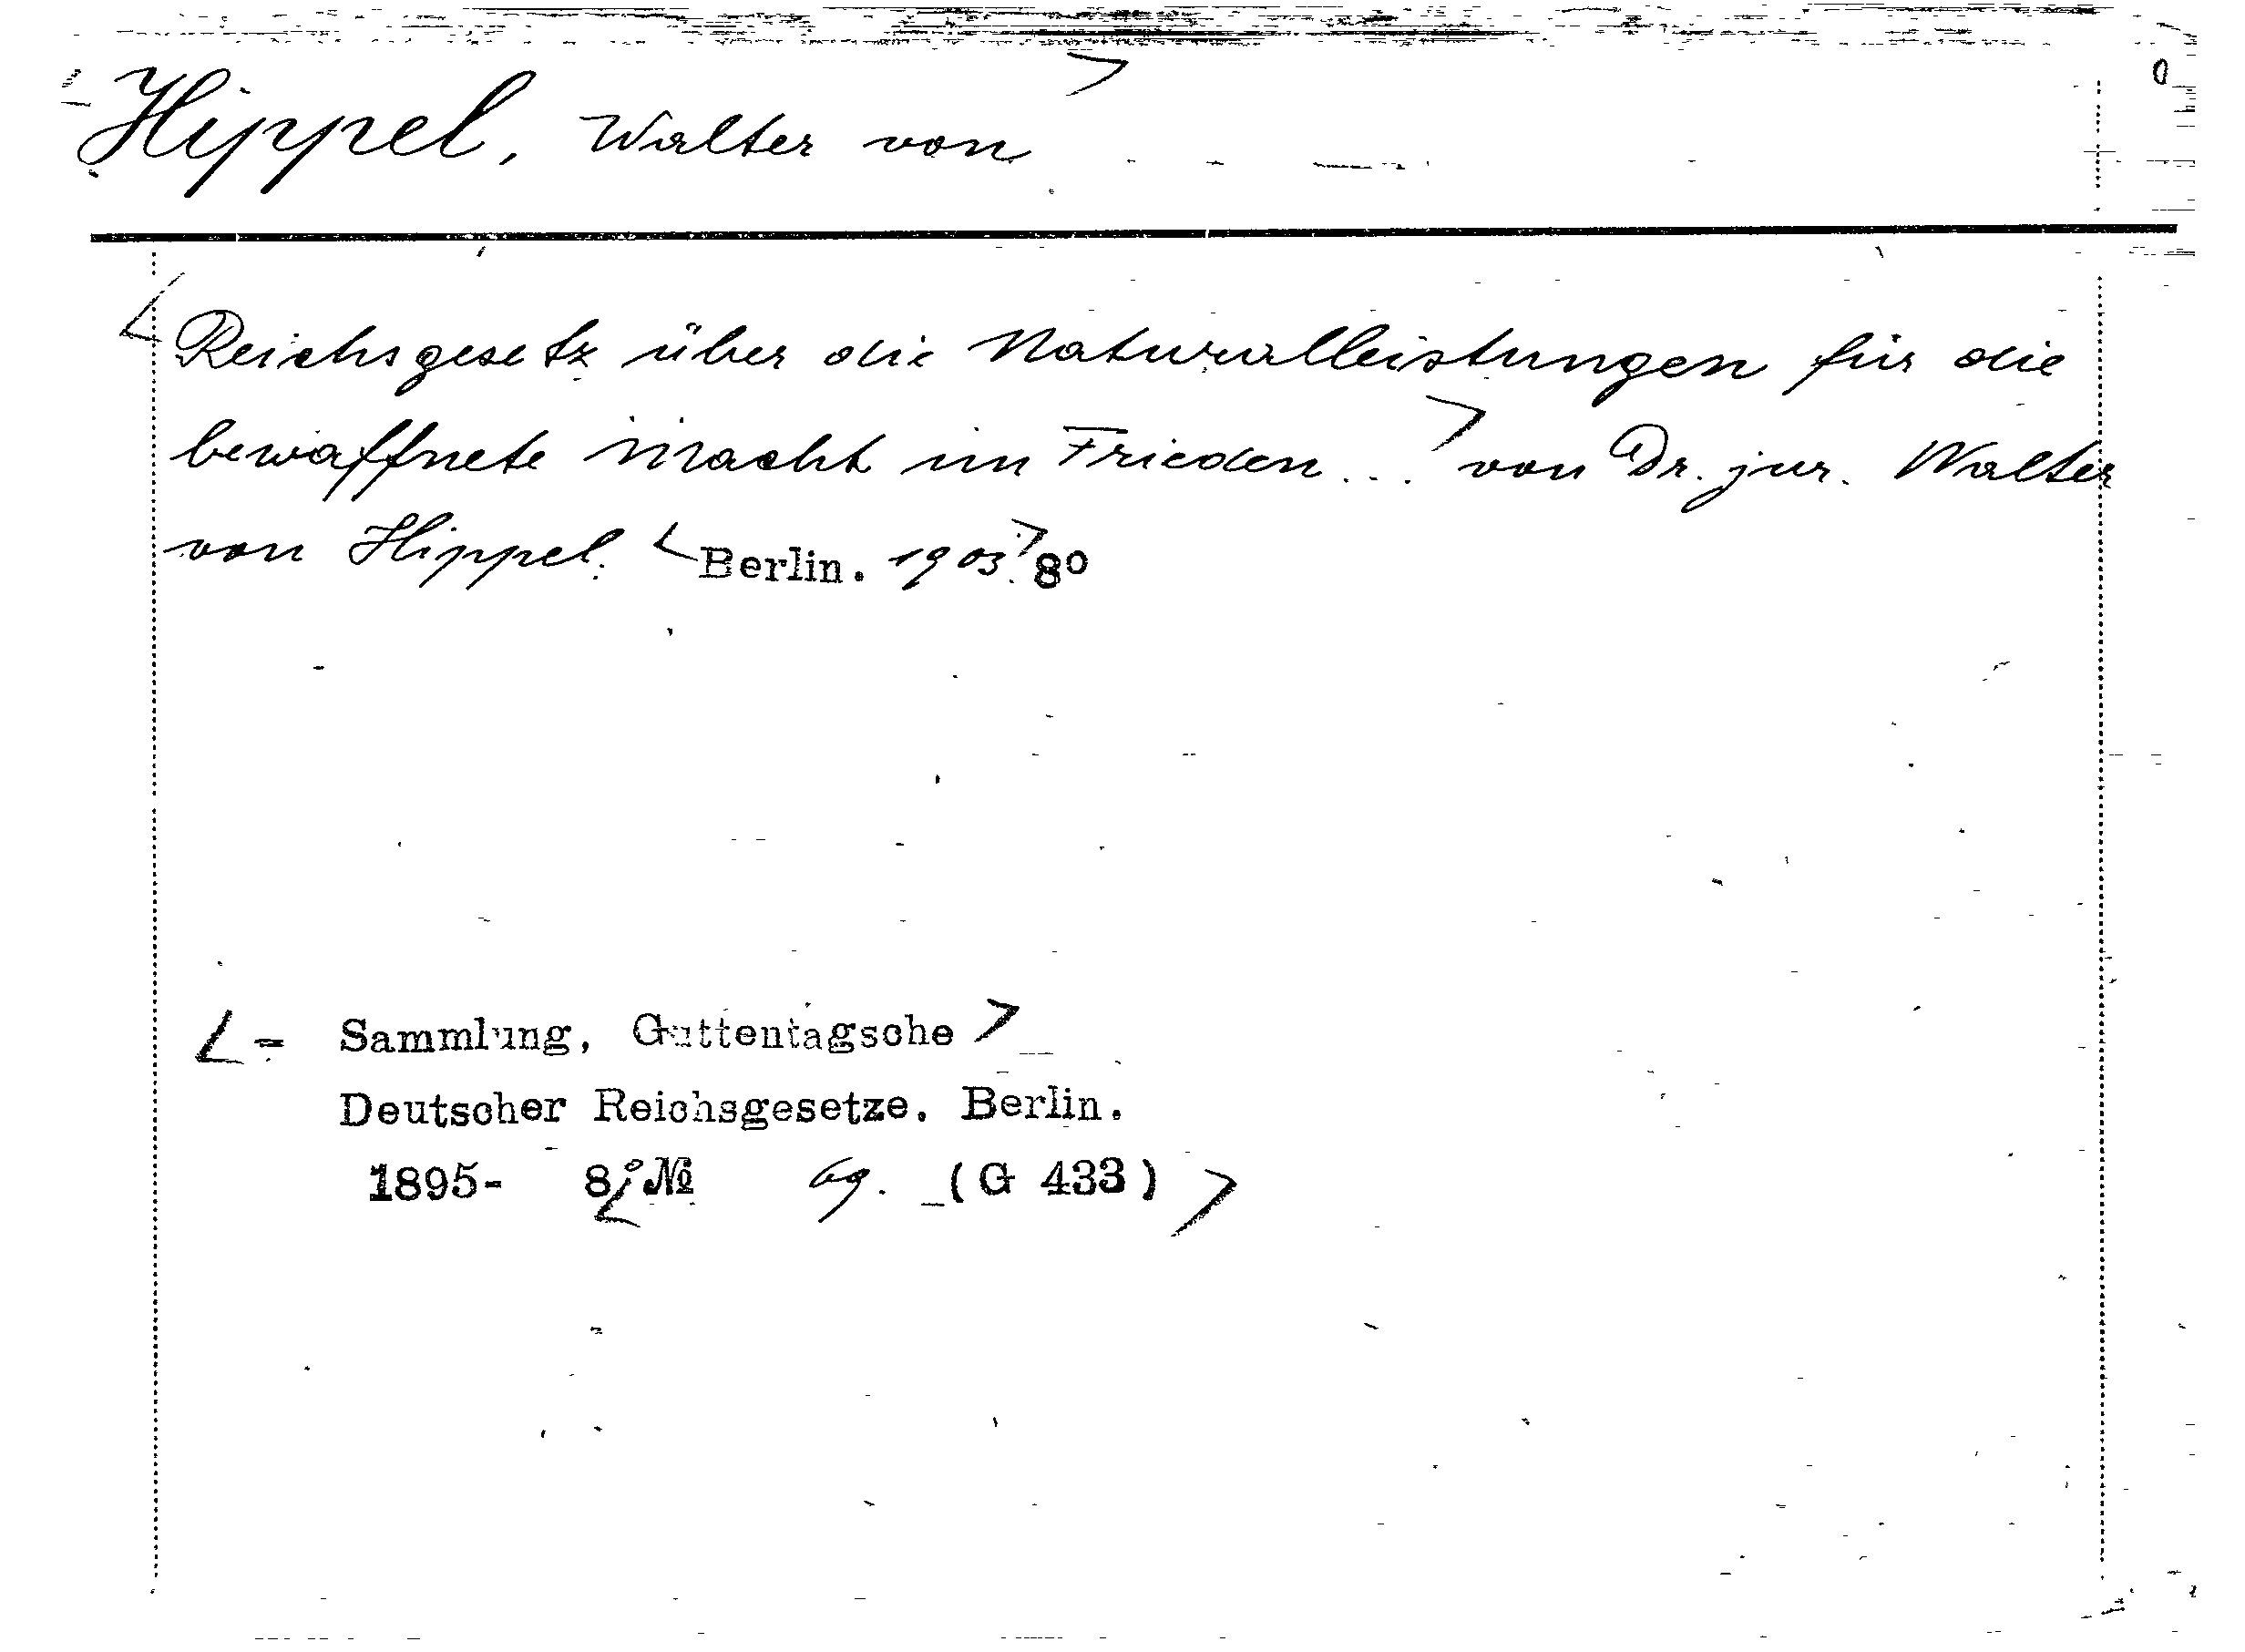 Hippel, Walter von >
< Reichsgesetz über die Naturalleistungen für die
bewaffnete Macht im Frieden ... > von Dr. jur. Walter
von Hippel. < Berlin. 1903. > 8°
< = Sammlung, Guttentagsche >
Deutscher Reichsgesetze. Berlin.
1895- 8° < № 69. (G 433) >